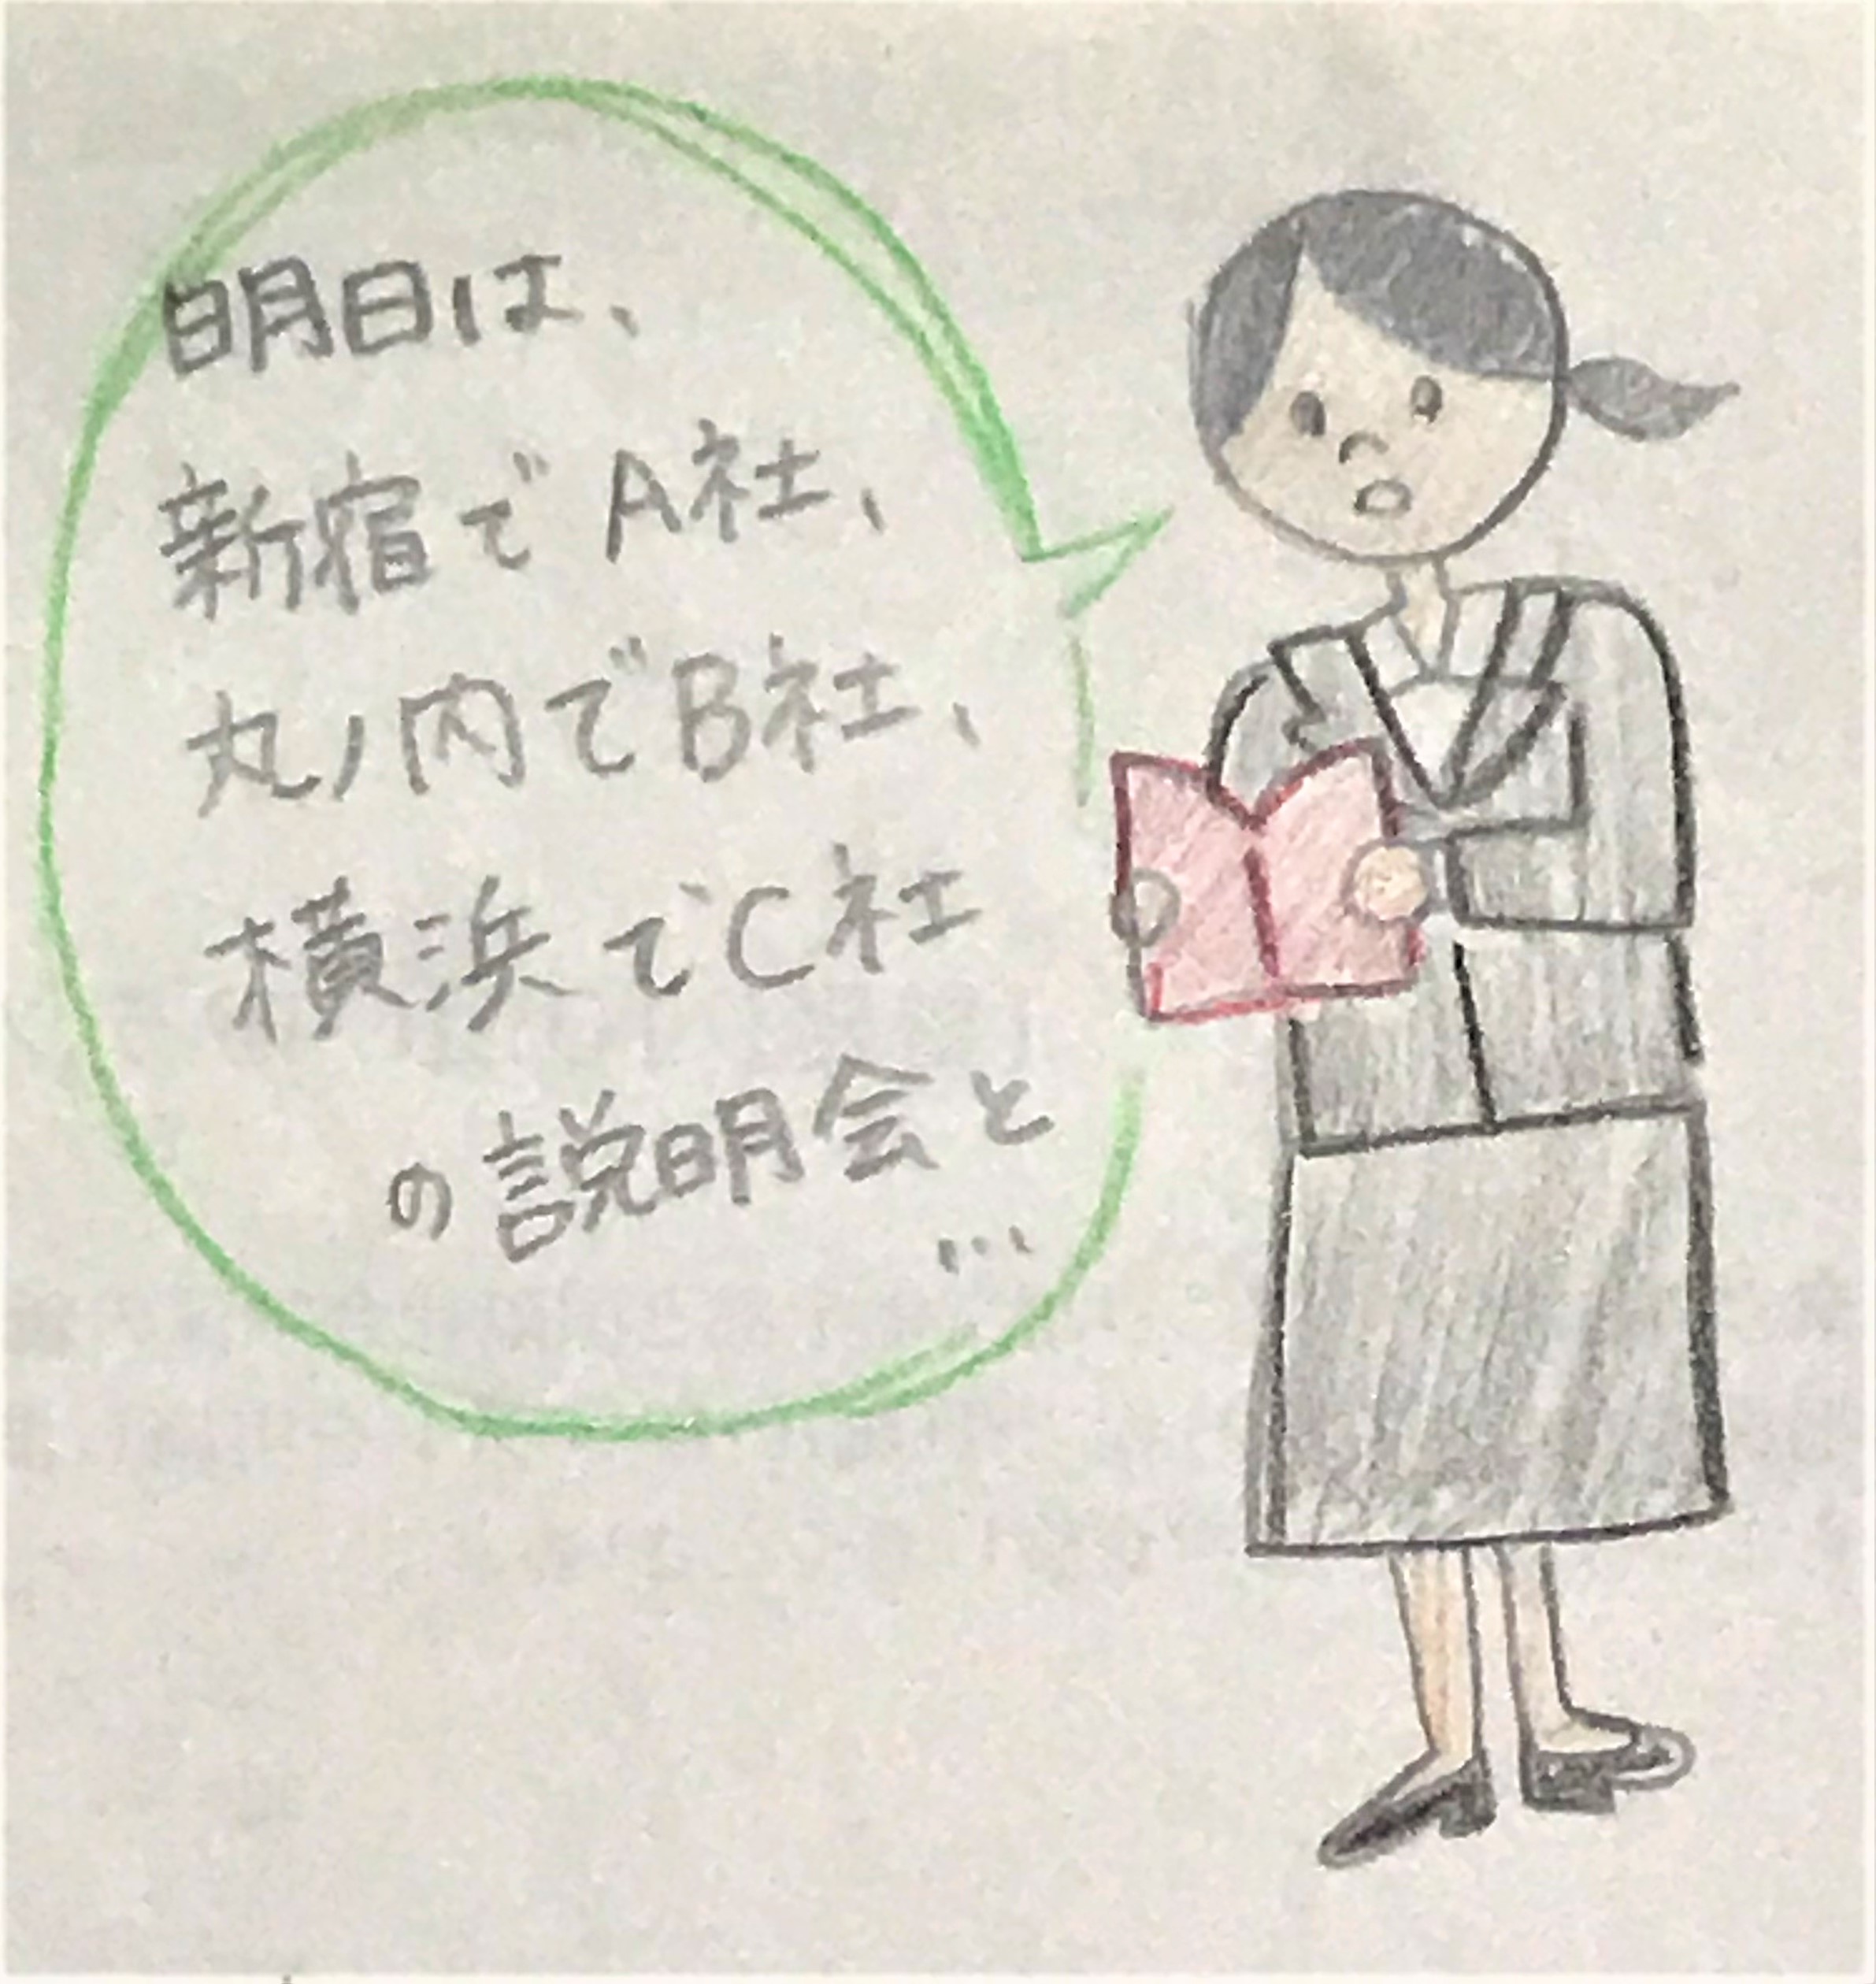 明日は、
新宿でA社、
丸ノ内でB社、
横浜でC社
の説明会と
...